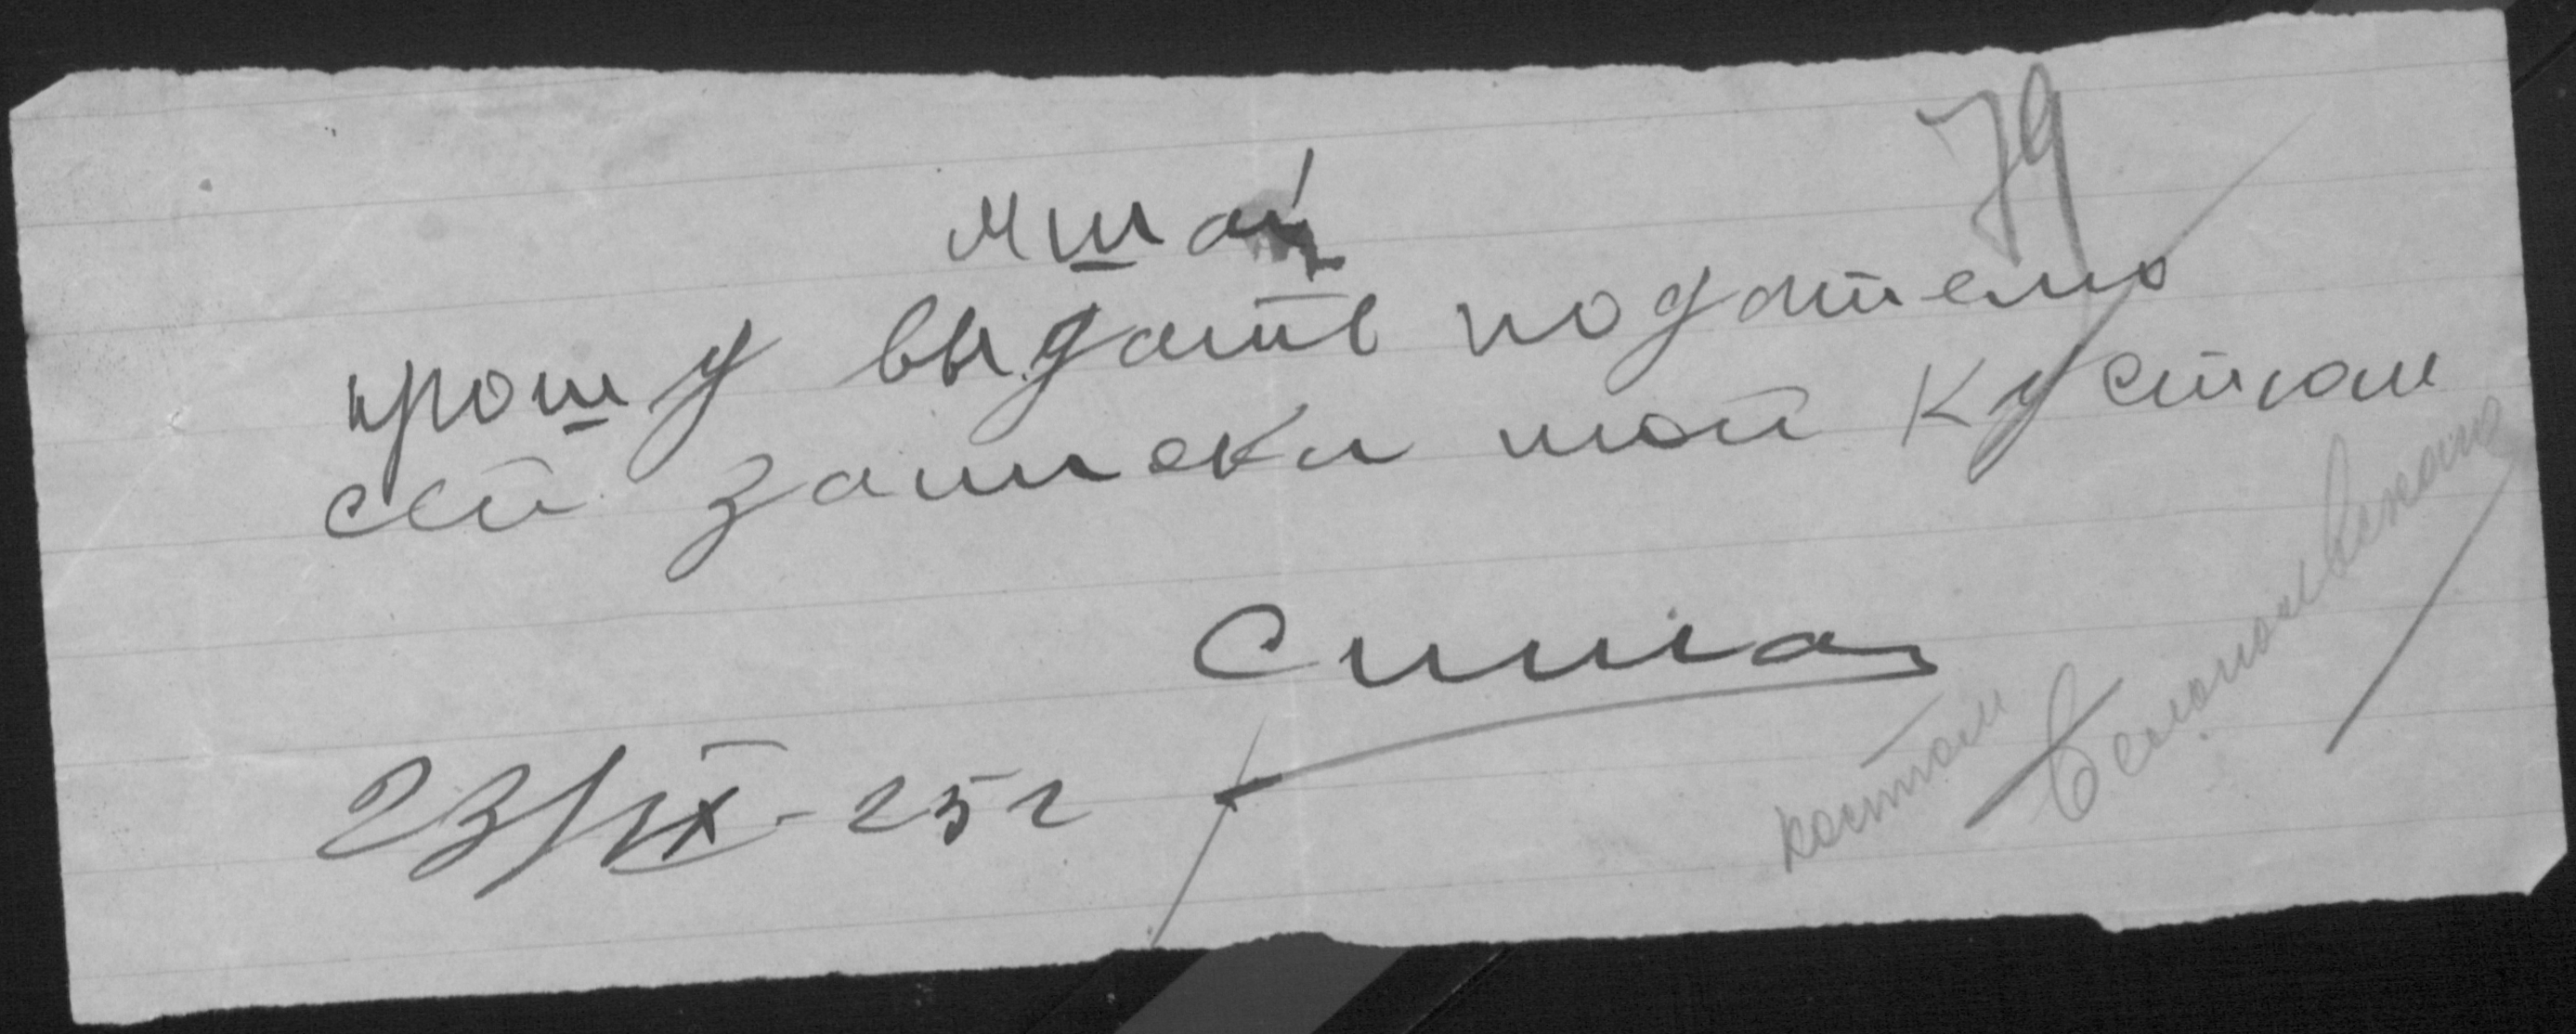 79
Миша!
прошу выдать подателю
сей записки мой кустюм
Сима
23/IX - 25 г
костюм